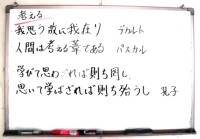 考える
我思う故に我在り デカルト
人間は考える葦である パスカル
学びて思わざれば則ち罔し、
思いて学ばざれば則ち殆うし 孔子